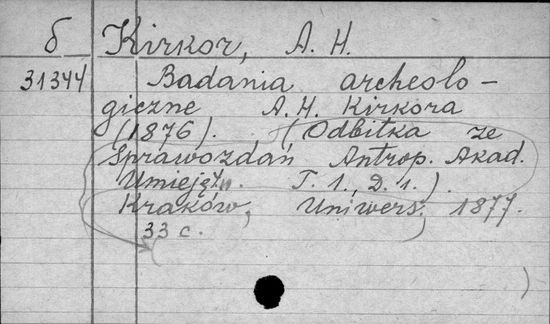 б Kirkor, A. H.
31344 Badania archeolo-
giczne A. H. Kirkora
(1876). (Odbitka ze
Sprawozdań Antrop. Akad.
Umiejętn. T. 1., D. 1.).
Kraków, Uniwers. 1877.
33 c.